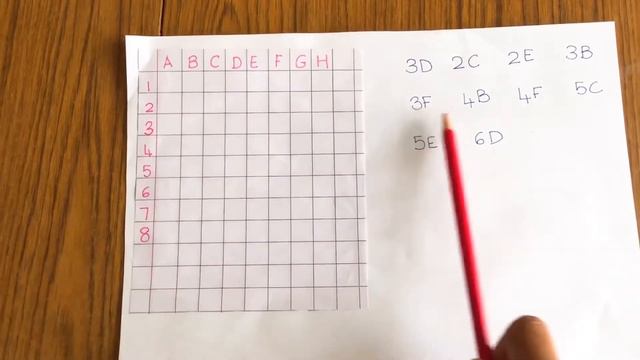 A B C D E F G H
1
2
3
4
5
6
7
8
3D 2C 2E 3B
3F 4B 4F 5C
5E 6D